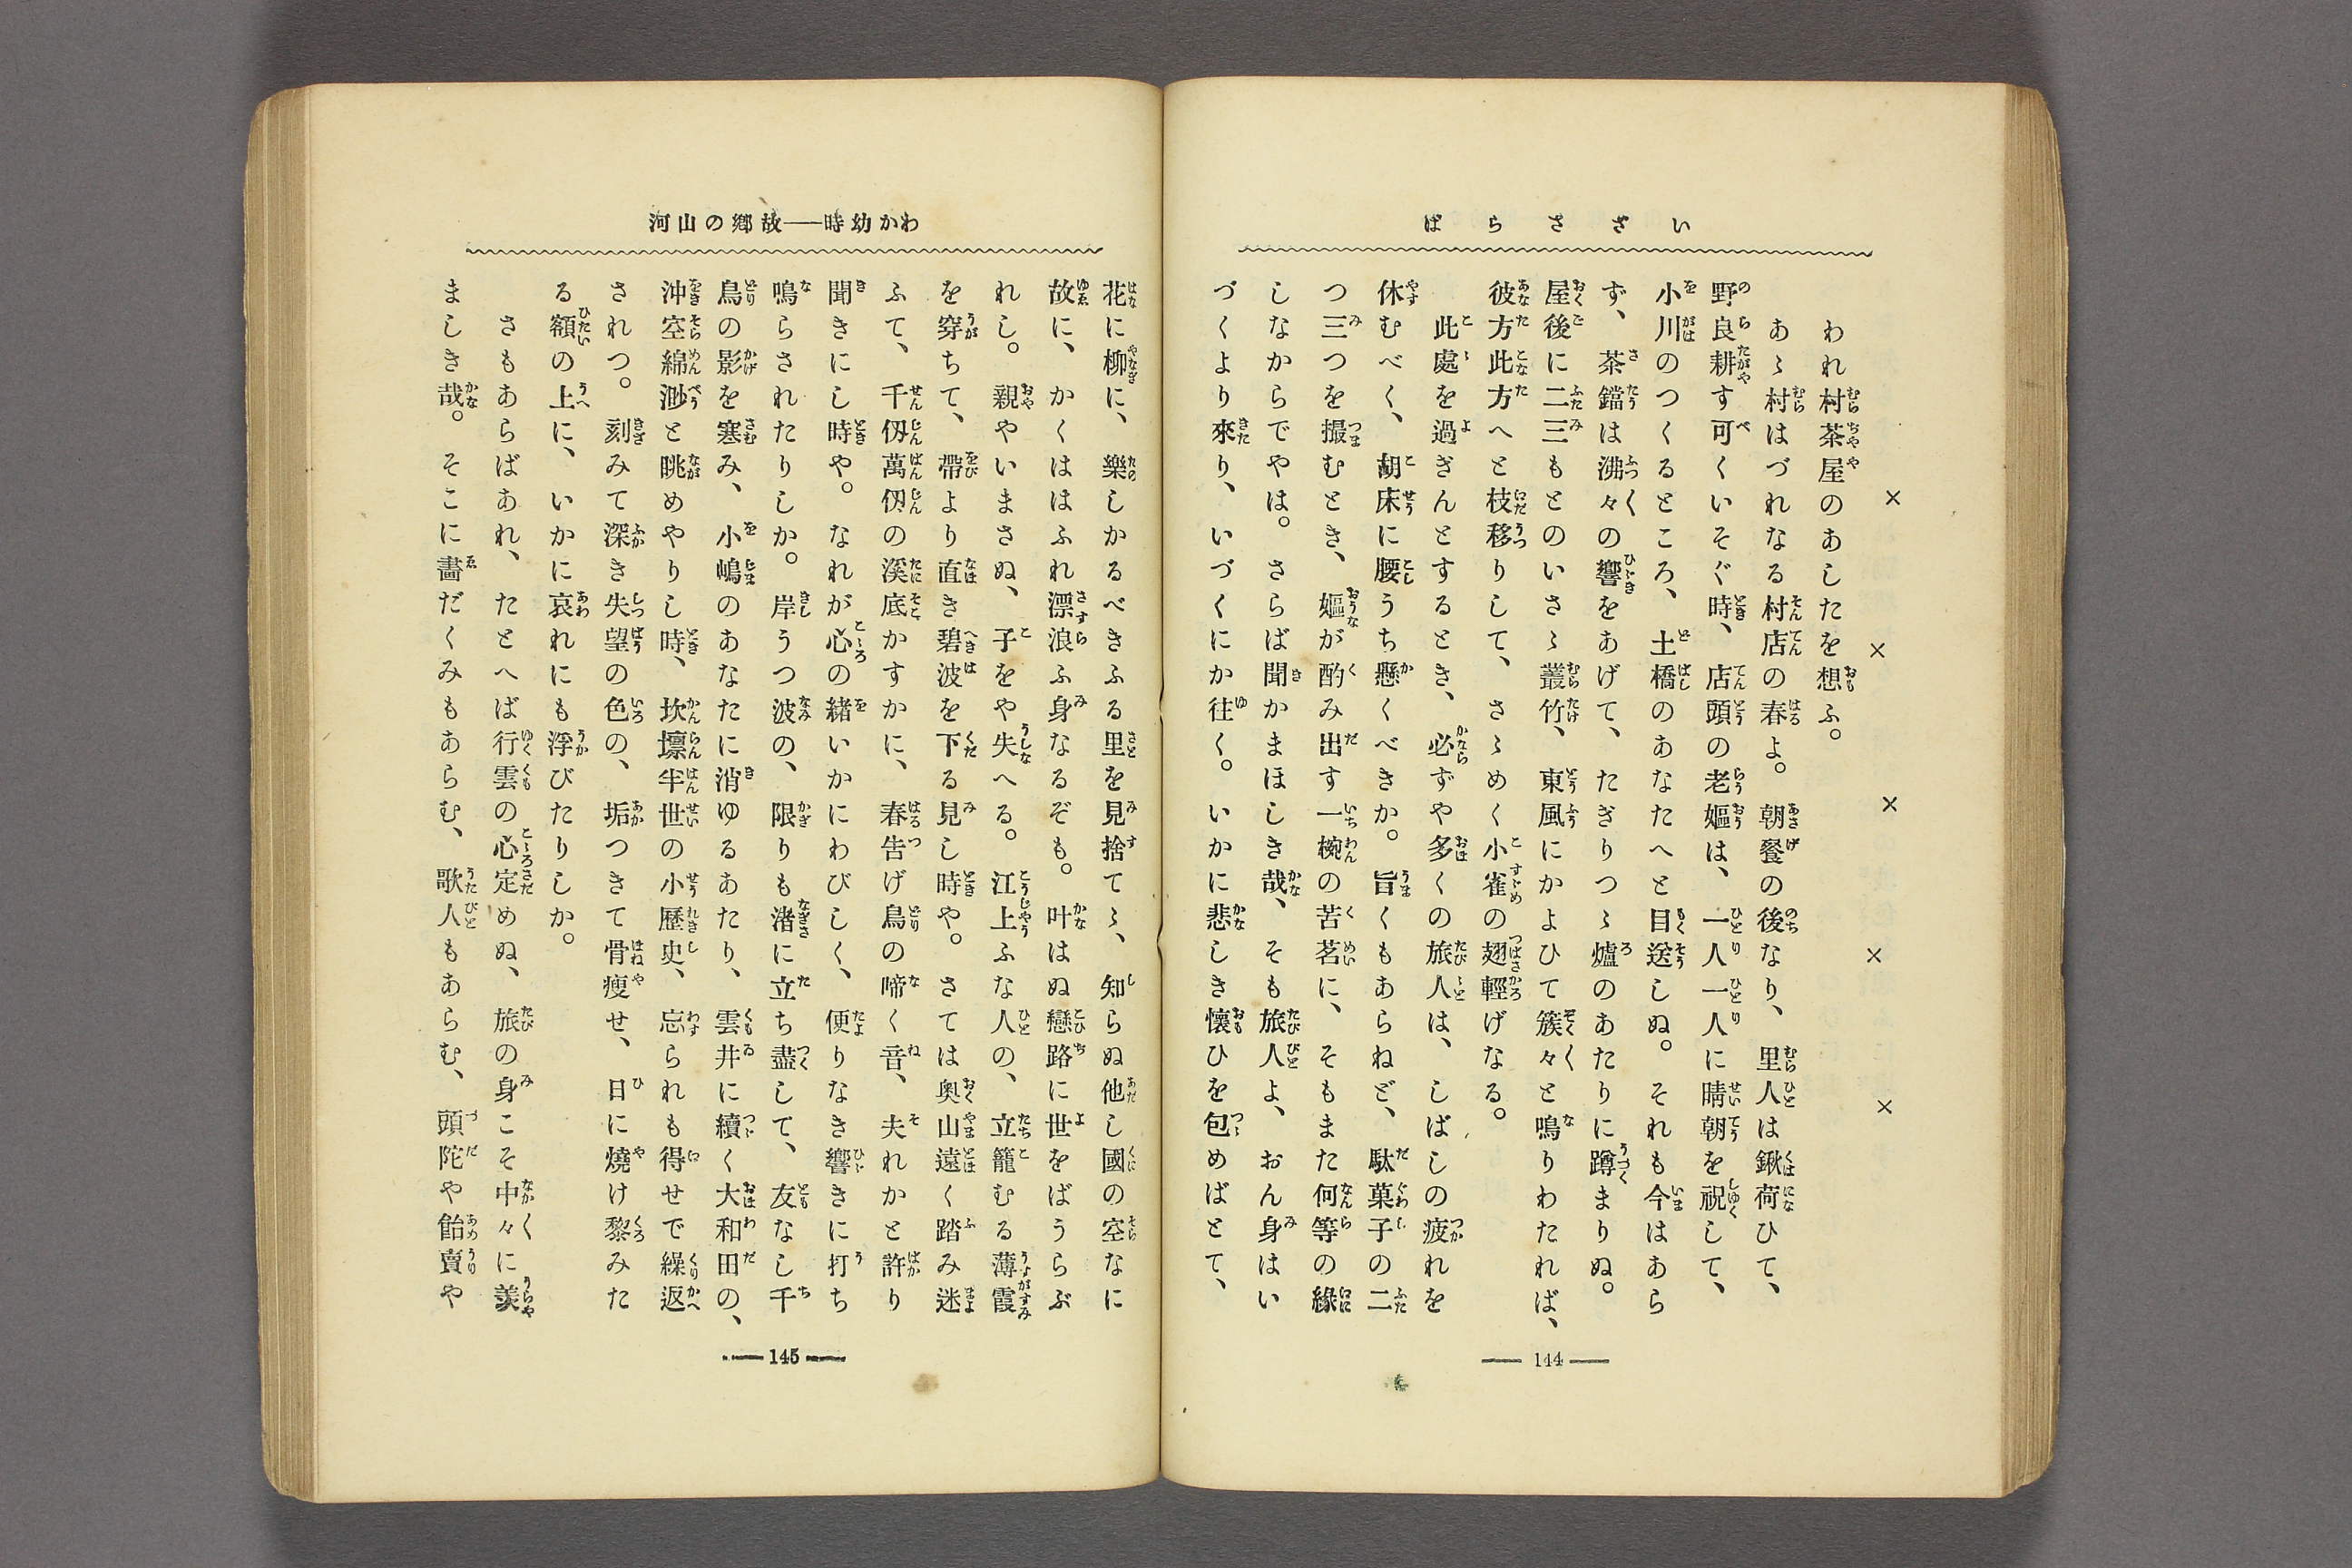 いざさらば
×　×　×　×　×
われ村茶屋のあしたを想ふ。
あゝ村はづれなる村店の春よ。朝餐の後なり、里人は鍬荷ひて、
野良耕す可くいそぐ時、店頭の老嫗は、一人一人に晴朝を祝して、
小川のつくるところ、土橋のあなたへと目送しぬ。それも今はあら
ず、茶鐺は沸々の響をあげて、たぎりつゝ爐のあたりに蹲まりぬ。
屋後に二三もとのいさゝ叢竹、東風にかよひて簇々と鳴りわたれば、
彼方此方へと枝移りして、さゝめく小雀の翅輕げなる。
此處を過ぎんとするとき、必ずや多くの旅人は、しばしの疲れを
休むべく、胡床に腰うち懸くべきか。旨くもあらねど、駄菓子の二
つ三つを撮むとき、嫗が酌み出す一椀の苦茗に、そもまた何等の緣
しなからでやは。さらば聞かまほしき哉、そも旅人よ、おん身はい
づくより來り、いづくにか往く。いかに悲しき懷ひを包めばとて、
144
わか幼時――故鄕の山河
花に柳に、樂しかるべきふる里を見捨てゝ、知らぬ他し國の空なに
故に、かくははふれ漂浪ふ身なるぞも。叶はぬ戀路に世をばうらぶ
れし。親やいまさぬ、子をや失へる。江上ふな人の、立籠むる薄霞
を穿ちて、帶より直き碧波を下る見し時や。さては奧山遠く踏み迷
ふて、千仭萬仭の溪底かすかに、春告げ鳥の啼く音、夫れかと許り
聞きにし時や。なれが心の緒いかにわびしく、便りなき響きに打ち
鳴らされたりしか。岸うつ波の、限りも渚に立ち盡して、友なし千
鳥の影を寒み、小嶋のあなたに消ゆるあたり、雲井に續く大和田の、
沖空綿渺と眺めやりし時、坎壈半世の小歷史、忘られも得せで繰返
されつ。刻みて深き失望の色の、垢つきて骨瘦せ、日に燒け黎みた
る額の上に、いかに哀れにも浮びたりしか。
さもあらばあれ、たとへば行雲の心定めぬ、旅の身こそ中々に羨
ましき哉。そこに畵だくみもあらむ、歌人もあらむ、頭陀や飴賣や
145